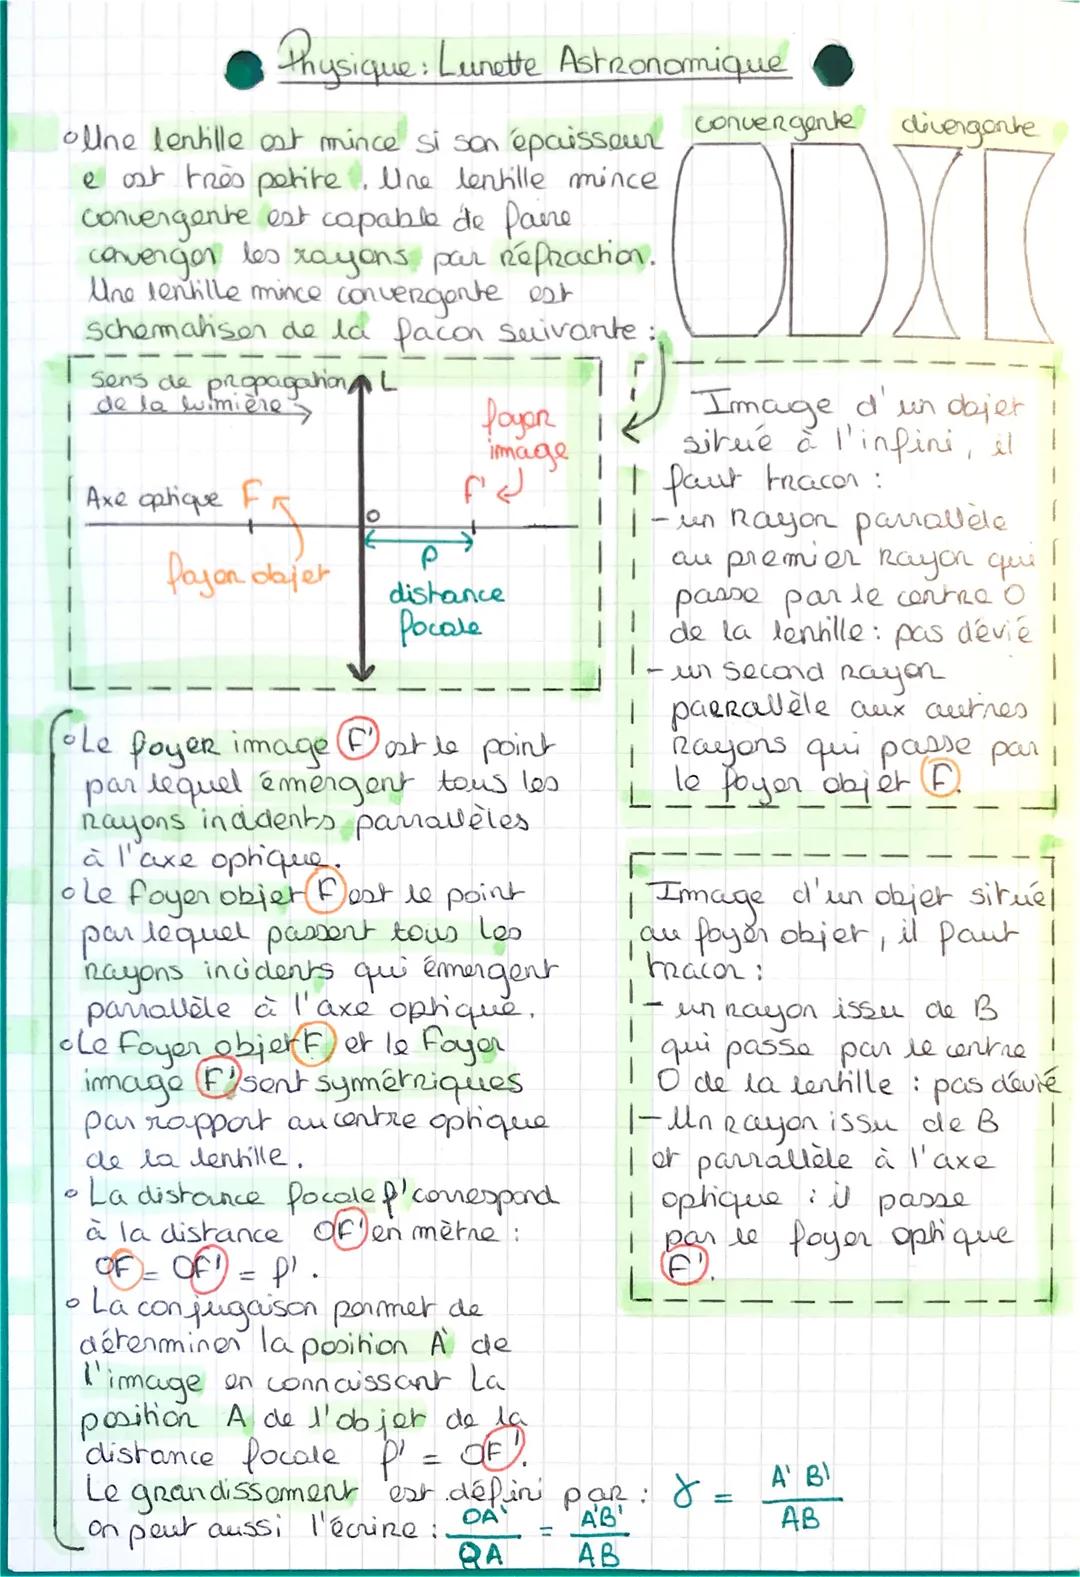 Physique : Lunette Astronomique
convergente divergente
• Une lentille est mince si son épaisseur
e est très petite. Une lentille mince
convergente est capable de faire
converger les rayons par réfraction.
Une lentille mince convergente est
schematiser de la facon suivante :
Sens de propagation
de la lumière
L
foyer
image
Axe optique F
F'
O
foyer objet
f
distance
focale
Image d'un objet
situé à l'infini, il
faut tracer :
- un Rayon parrallèle
au premier Rayon qui
passe par le centre O
de la lentille : pas dévié
- un second rayon
parrallèle aux autres
Rayons qui passe par
le foyer objet F.
• Le foyer image F' est le point
par lequel émergent tous les
rayons incidents parrallèles
à l'axe optique.
• Le foyer objet F est le point
par lequel passent tous les
rayons incidents qui émergent
parrallèle à l'axe optique.
• Le foyer objet F et le foyer
image F' sont symmétriques
par rapport au centre optique
de la lentille.
• La distance focale f' correspond
à la distance OF' en mètre :
OF = OF' = f'.
• La conjugaison permet de
déterminer la position A' de
l'image en connaissant la
position A de l'objet de la
distance focale f' = OF'.
Le grandissement est défini par : γ = A'B' / AB
On peut aussi l'écrire : OA' / OA = A'B' / AB
Image d'un objet situé
au foyer objet, il faut
tracer :
- un rayon issu de B
qui passe par le centre
O de la lentille : pas dévié
- Un rayon issu de B
et parrallèle à l'axe
optique : il passe
par le foyer optique
F'.